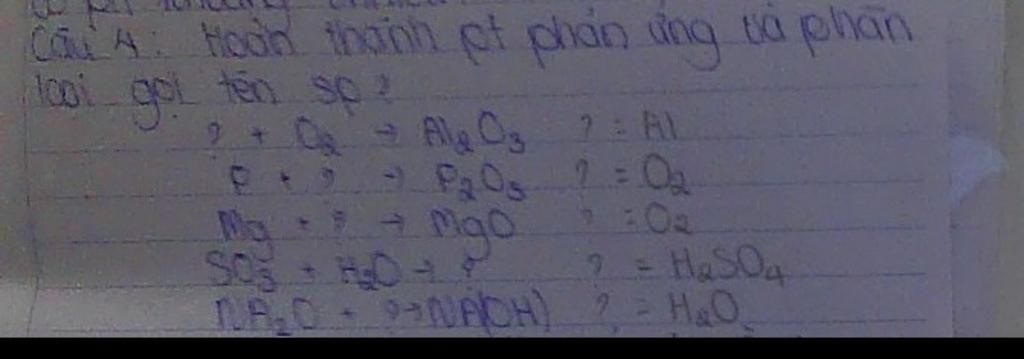 Câu 4: Hoàn thành pt phản ứng và phân
loại gọi tên sp?
? + O₂ → Al₂O₃ ? = Al
P + ? → P₂O₅ ? = O₂
Mg + ? → MgO ? = O₂
SO₃ + H₂O → ? ? = H₂SO₄
NA₂O + ? → NA(OH) ? = H₂O